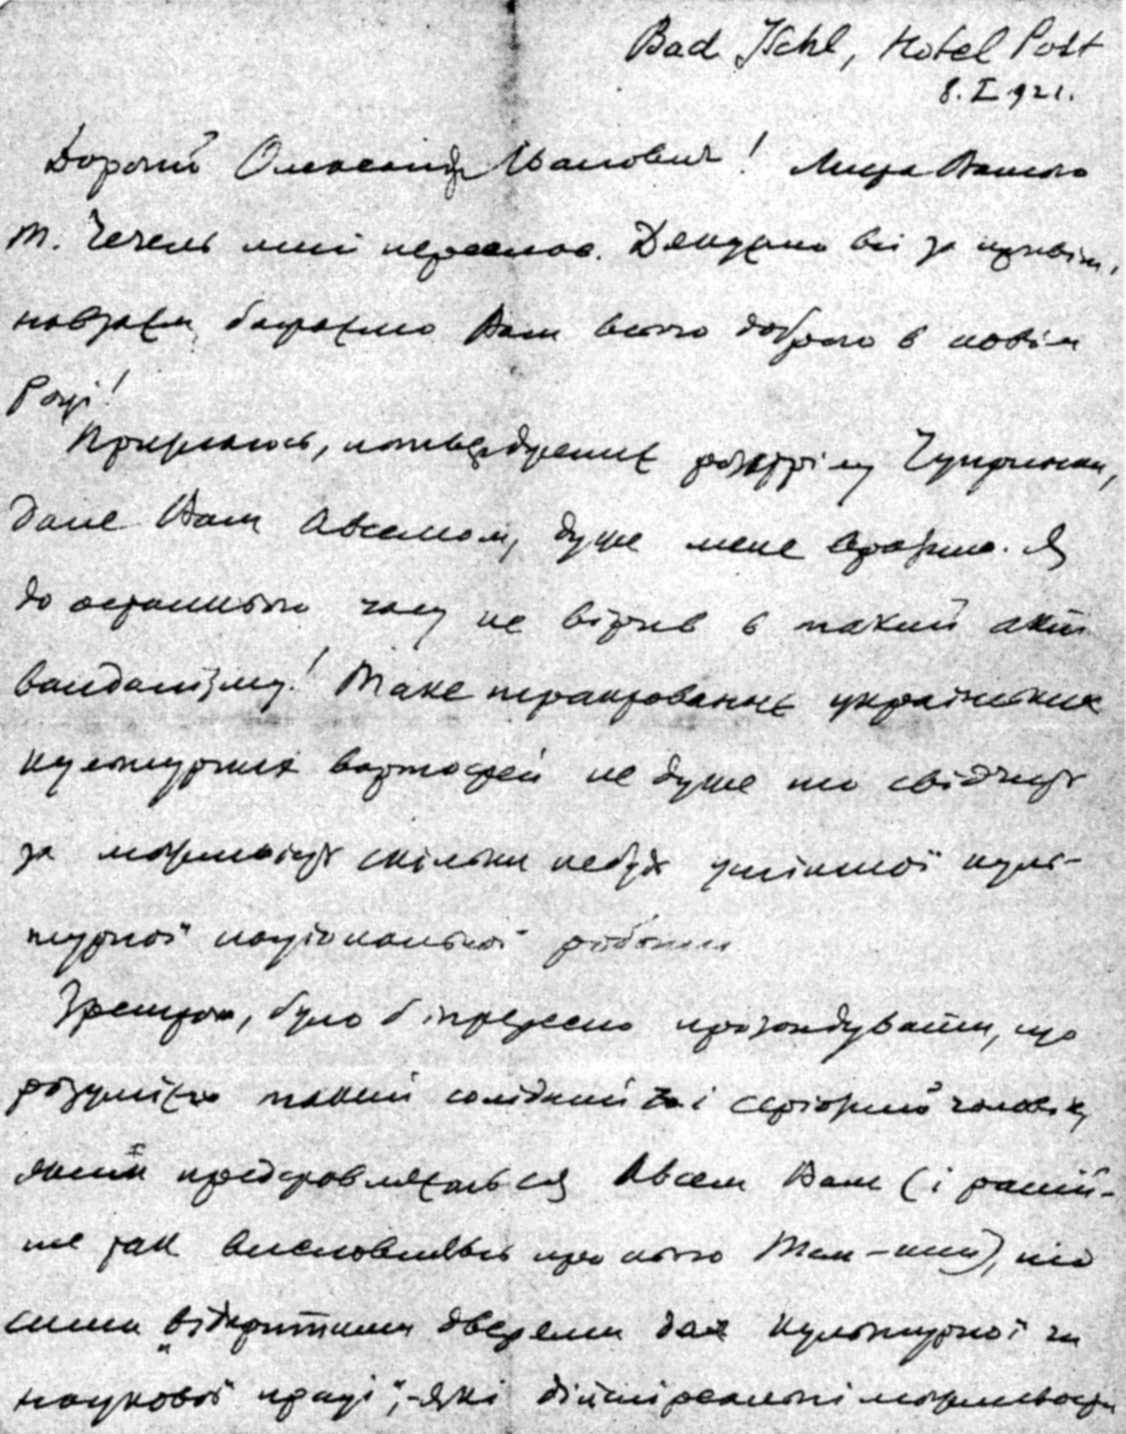 Bad Ischl, Hotel Post
8. I 921.
Дорогий Олександр Іванович! Листа Вашого
т. Чечель мені переслав. Дякуємо всі за привіт,
навзаєм бажаємо Вам всього доброго в новім
Році!
Признаюсь, потвердженнє розстрілу Чупринки,
дане Вам Авсемом, дуже мене вразило. Я
до останнього часу не вірив в такий акт
вандалізму! Таке трактованнє українських
культурних вартостей не дуже то свідчить
за можливість скільки небудь успішної куль-
турної національної роботи
Зрештою, було б інтересно прозондувати, що
розуміє такий солідний і серіозний чоловік,
яким представляється Авсем Вам (і раній-
ше так висловлявсь про нього), під
сими „відкритими дверями для культурної чи
наукової праці“, - які дійсні реальні можливости